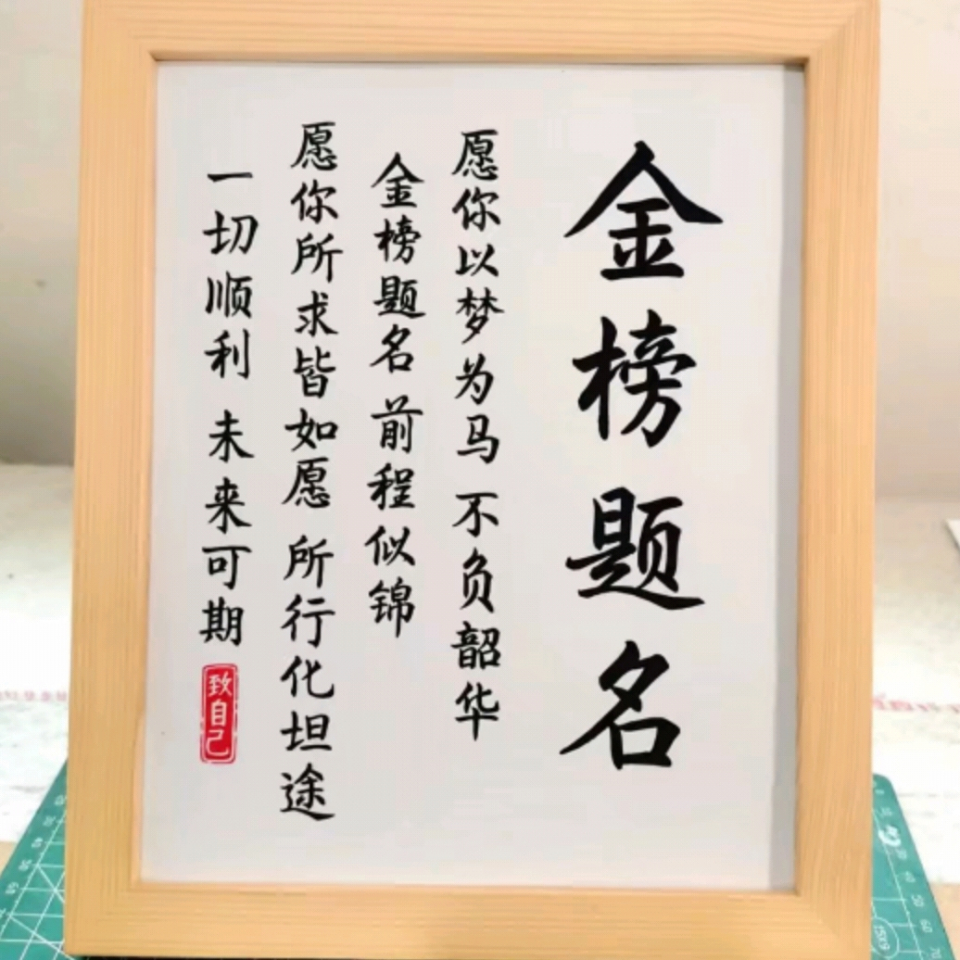 金榜题名
愿你以梦为马 不负韶华
金榜题名 前程似锦
愿你所求皆如愿 所行化坦途
一切顺利 未来可期
致自己